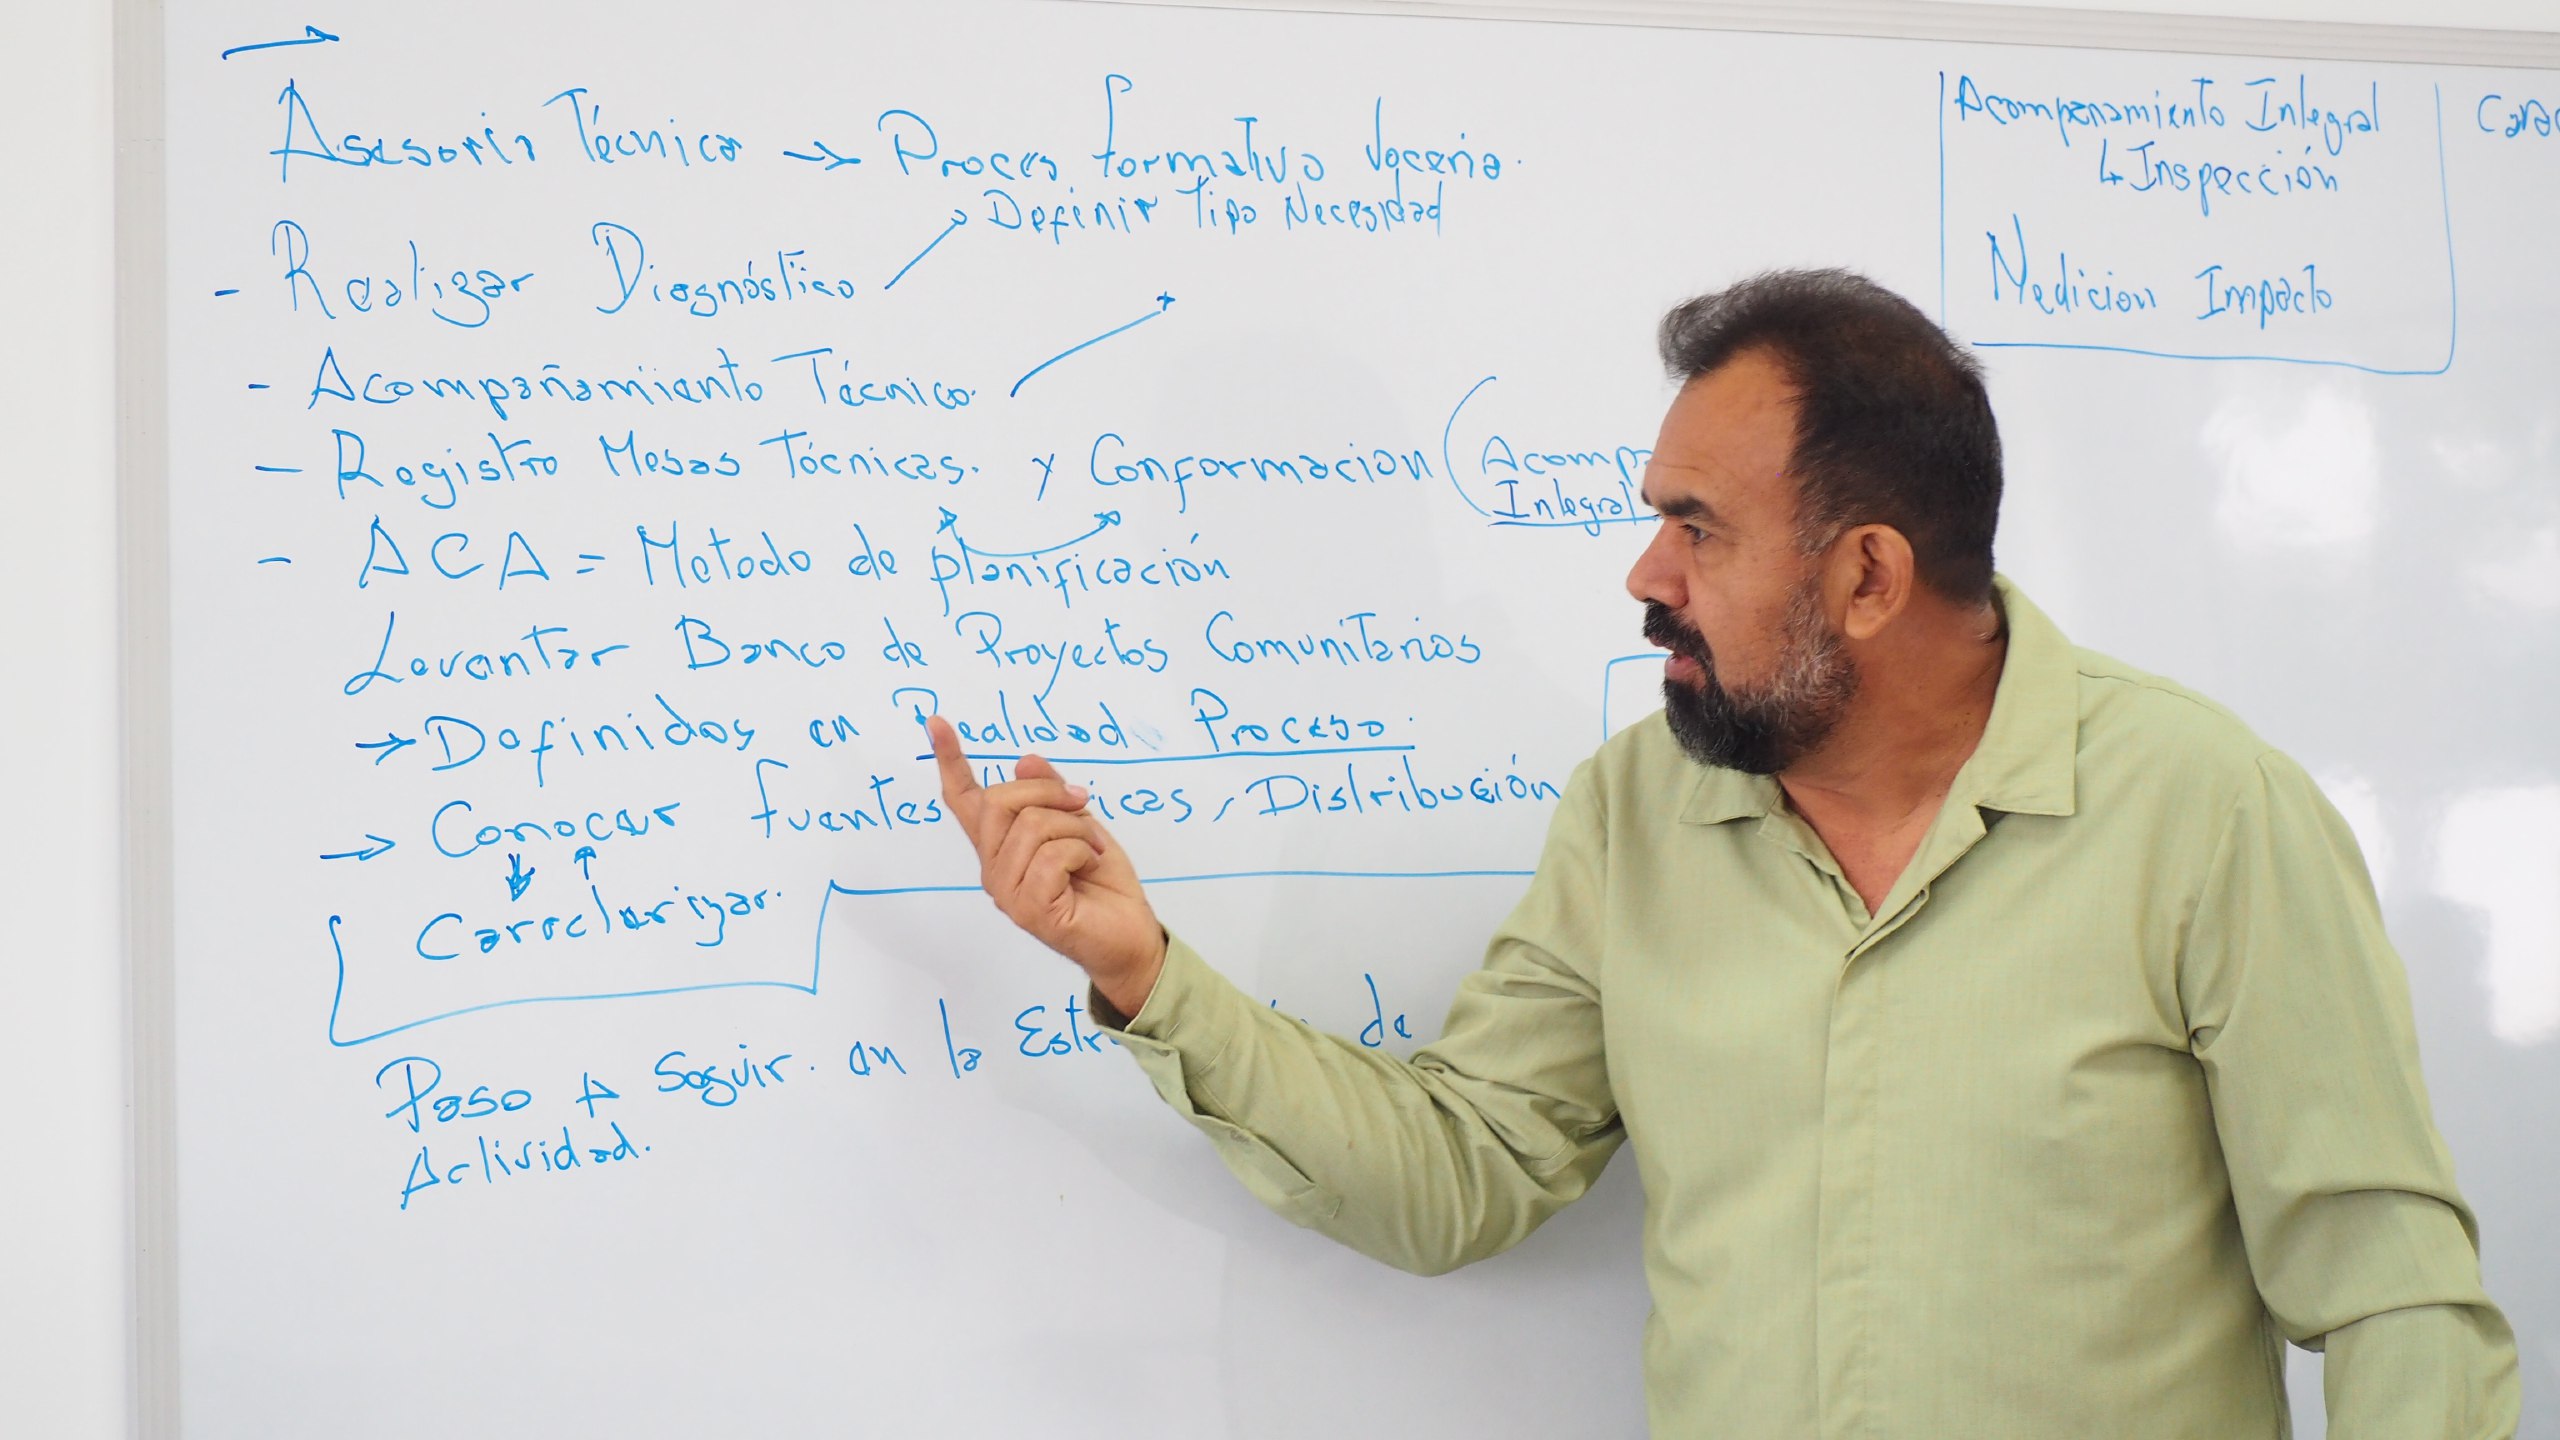 Asesoria Técnica → Proces formativo Voceria.
Definir Tipo Necesidad
- Realizar Diagnóstico
- Acompañamiento Técnico.
- Registro Mesas Técnicas. y Conformacion (Acomp
Integral
- ACA = Metodo de planificación
Levantar Banco de Proyectos Comunitarios
→ Definidos en Realidad Proceso.
→ Conocer fuentes icas, Distribución
Caracterizar.
Paso A Seguir. en la Estr de
Actividad.
Acompañamiento Integral
↳ Inspección
Medicion Impacto
Carac